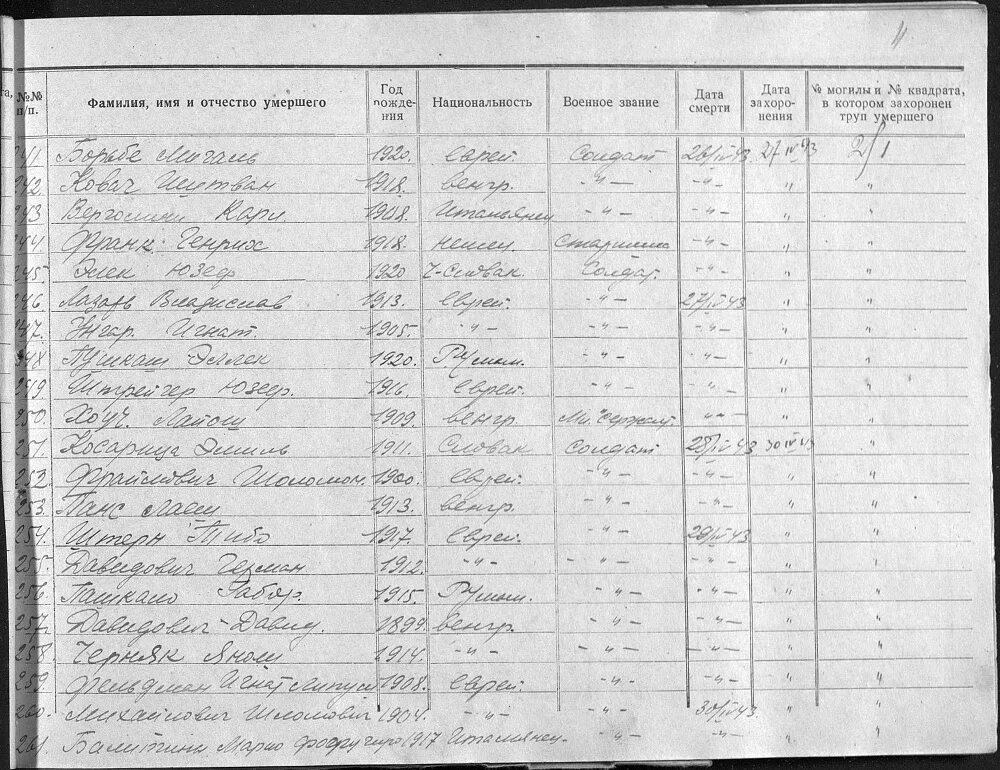 11
та, №№ п/п. Фамилия, имя и отчество умершего Год рождения Национальность Военное звание Дата смерти Дата захоронения № могилы и № квадрата, в котором захоронен труп умершего
241. Борьбе Мигаль 1920. еврей. солдат 26/IV 43 27 IV 43 2/1
242. Ковач Иштван 1918. венгр. -"- -"- " "
243 Вергомини Карл 1908. Итальянец -"- -"- " "
244. Франк Генрих 1918. немец старшина -"- " "
245. Элек Юзеф 1920 Ч-Словак. Солдат. -"- " "
246. Лазарь Владислав 1913. Еврей. -"- 27/IV 43 " "
247. Унгар. Игнат. 1905. -"- -"- -"- " "
248 Пушкаш Эллек 1920. Румын. -"- -"- " "
249. Штрейгер Юзеф. 1916. еврей. -"- -"- " "
250. Лайош 1909. венгр. Мл. Сержант. -"- " "
251. Косарица Эмиль 1911. Словак солдат 28/IV 43 30 IV 43 "
252. Фрайлович Шоломон. 1900. еврей. -"- -"- " "
253. Ганс Лаеш 1913. венгр. -"- -"- " "
254. Штерн Тибо 1917. еврей. -"- 29/IV 43 " "
255. Давидович Герман 1912. -"- -"- -"- " "
256. Габор. 1915. Румын. -"- -"- " "
257. Давидович Давид. 1899. венгр. -"- -"- " "
258. Черняк Янош 1914. -"- -"- -"- " "
259. Фельдман Игнат 1908. еврей. -"- -"- " "
260. Михайлович Шломович 1904. -"- -"- 30/IV 43. " "
261. Марио 1917 Итальянец. -"- -"- " "